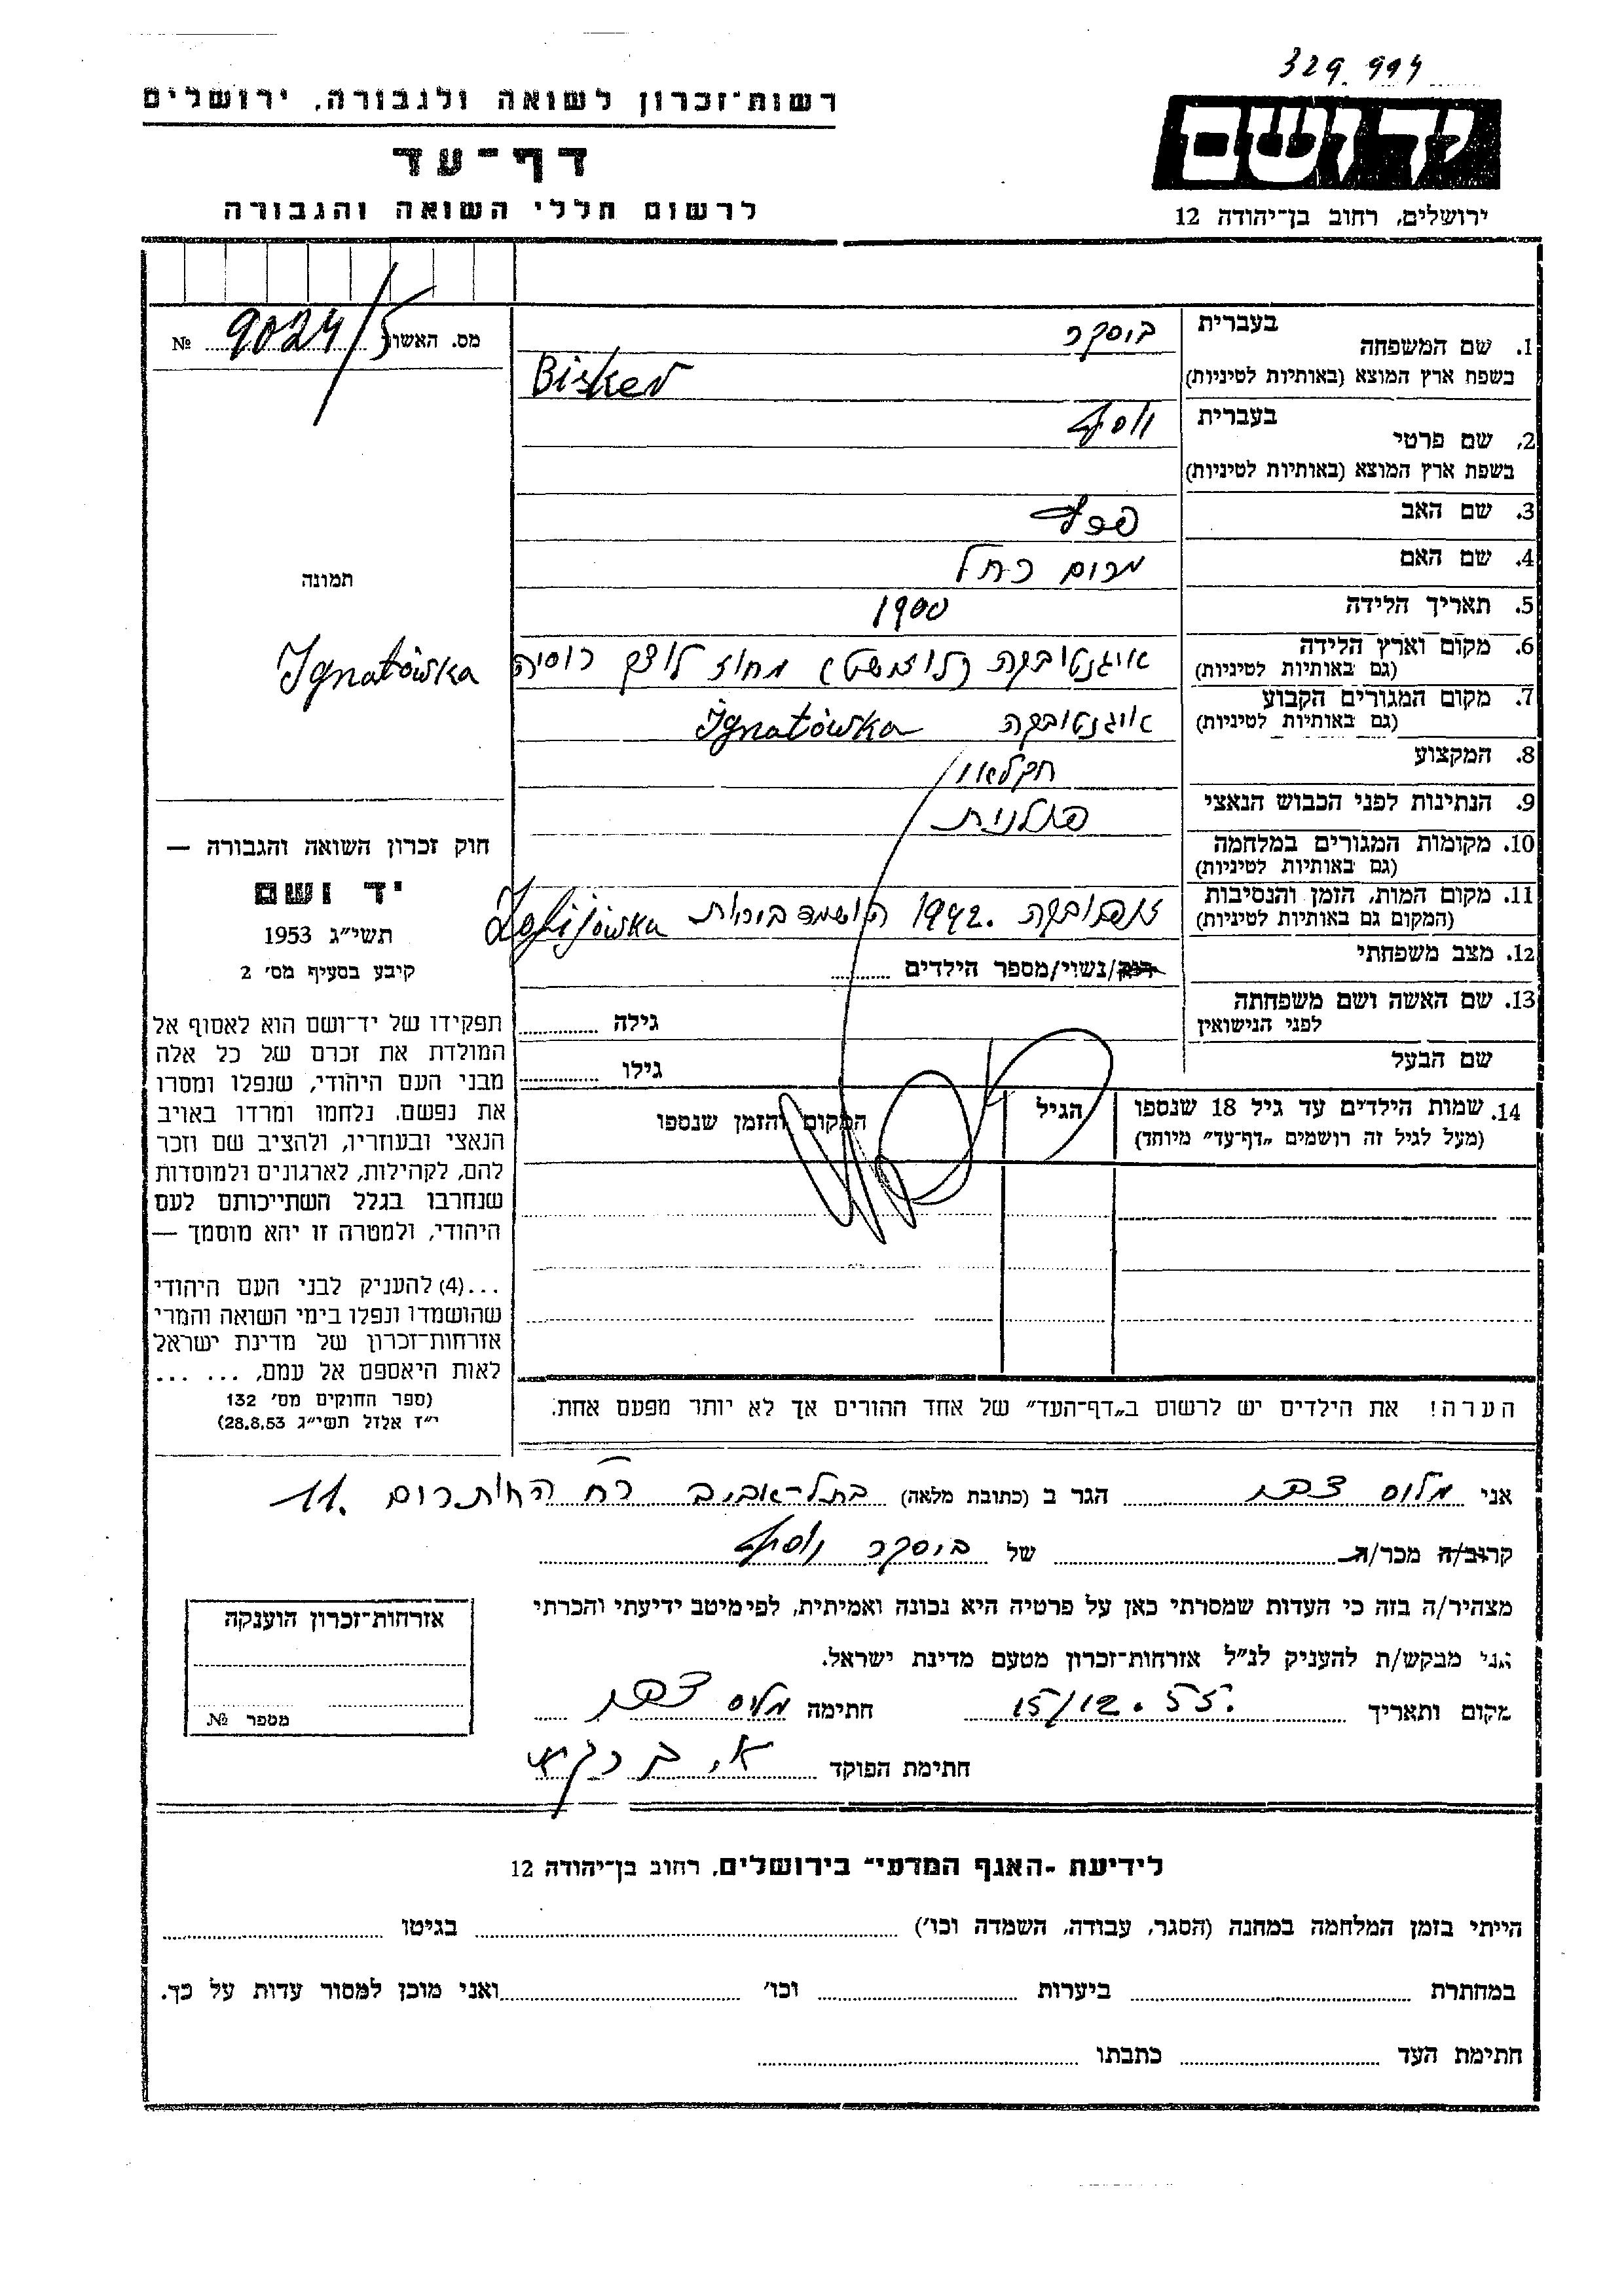 329.994
רשות־זכרון לשואה ולגבורה, ירושלים
דף־עד
לרשום חללי השואה והגבורה
יד ושם
ירושלים, רחוב בן־יהודה 12
מס. האשור 9024/5 №
1. שם המשפחה
בעברית
ביסקר
בשפת ארץ המוצא (באותיות לטיניות)
Bisker
2. שם פרטי
בעברית
יוסף
בשפת ארץ המוצא (באותיות לטיניות)
3. שם האב
4. שם האם
מרים רחל
5. תאריך הלידה
1900
6. מקום וארץ הלידה
(גם באותיות לטיניות)
איגנטובקה (לוזישט) מחוז לוצק רוסיה
Ignatówka
7. מקום המגורים הקבוע
(גם באותיות לטיניות)
איגנטובקה Ignatówka
8. המקצוע
חקלאי
9. הנתינות לפני הכבוש הנאצי
פולנית
10. מקומות המגורים במלחמה
(גם באותיות לטיניות)
11. מקום המות, הזמן והנסיבות
(המקום גם באותיות לטיניות)
1942.
12. מצב משפחתי
רוק/נשוי/מספר הילדים
13. שם האשה ושם משפחתה
לפני הנישואין
גילה
שם הבעל
גילו
14. שמות הילדים עד גיל 18 שנספו
(מעל לגיל זה רושמים „דף־עד” מיוחד)
הגיל
המקום והזמן שנספו
הערה! את הילדים יש לרשום ב„דף־העד” של אחד ההורים אך לא יותר מפעם אחת.
תמונה
חוק זכרון השואה והגבורה —
יד ושם
תשי״ג 1953
קיבע בסעיף מס׳ 2
תפקידו של יד־ושם הוא לאסוף אל
המולדת את זכרם של כל אלה
מבני העם היהודי, שנפלו ומסרו
את נפשם, נלחמו ומרדו באויב
הנאצי ובעוזריו, ולהציב שם וזכר
להם, לקהילות, לארגונים ולמוסדות
שנחרבו בגלל השתייכותם לעם
היהודי, ולמטרה זו יהא מוסמך —
...(4) להעניק לבני העם היהודי
שהושמדו ונפלו בימי השואה והמרי
אזרחות־זכרון של מדינת ישראל
לאות היאספם אל עמם, ... ...
(ספר החוקים מס׳ 132
י״ז אלול תשי״ג 28.8.53)
אני הגר ב (כתובת מלאה) בתל־אביב רח 11.
קרוב/ה מכר/ה של ביסקר יוסף
מצהיר/ה בזה כי העדות שמסרתי כאן על פרטיה היא נכונה ואמיתית, לפי מיטב ידיעתי והכרתי
אני מבקש/ת להעניק לנ״ל אזרחות־זכרון מטעם מדינת ישראל.
מקום ותאריך 15/12.55. חתימה
חתימת הפוקד
אזרחות־זכרון הוענקה
מספר №
לידיעת ״האגף המדעי״ בירושלים, רחוב בן־יהודה 12
הייתי בזמן המלחמה במחנה (הסגר, עבודה, השמדה וכו׳) בגיטו
במחתרת ביערות וכו׳ ואני מוכן למסור עדות על כך.
חתימת העד כתבתו